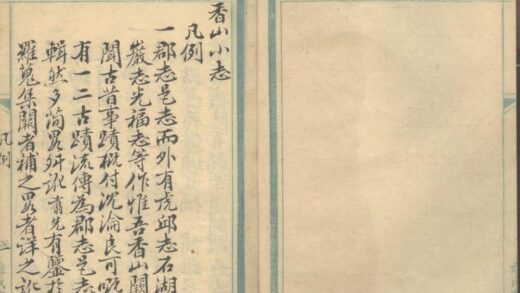 香山小志
凡例
一郡志邑志而外有虎邱志石湖
巖志光福志等作惟吾香山闕
聞古昔事蹟概付沉淪良可嘅
有一二古蹟流傳為郡志邑志
輯然多簡畧舛訛青先有鑒於
羅蒐集闕者補之畧者詳之訛
凡例